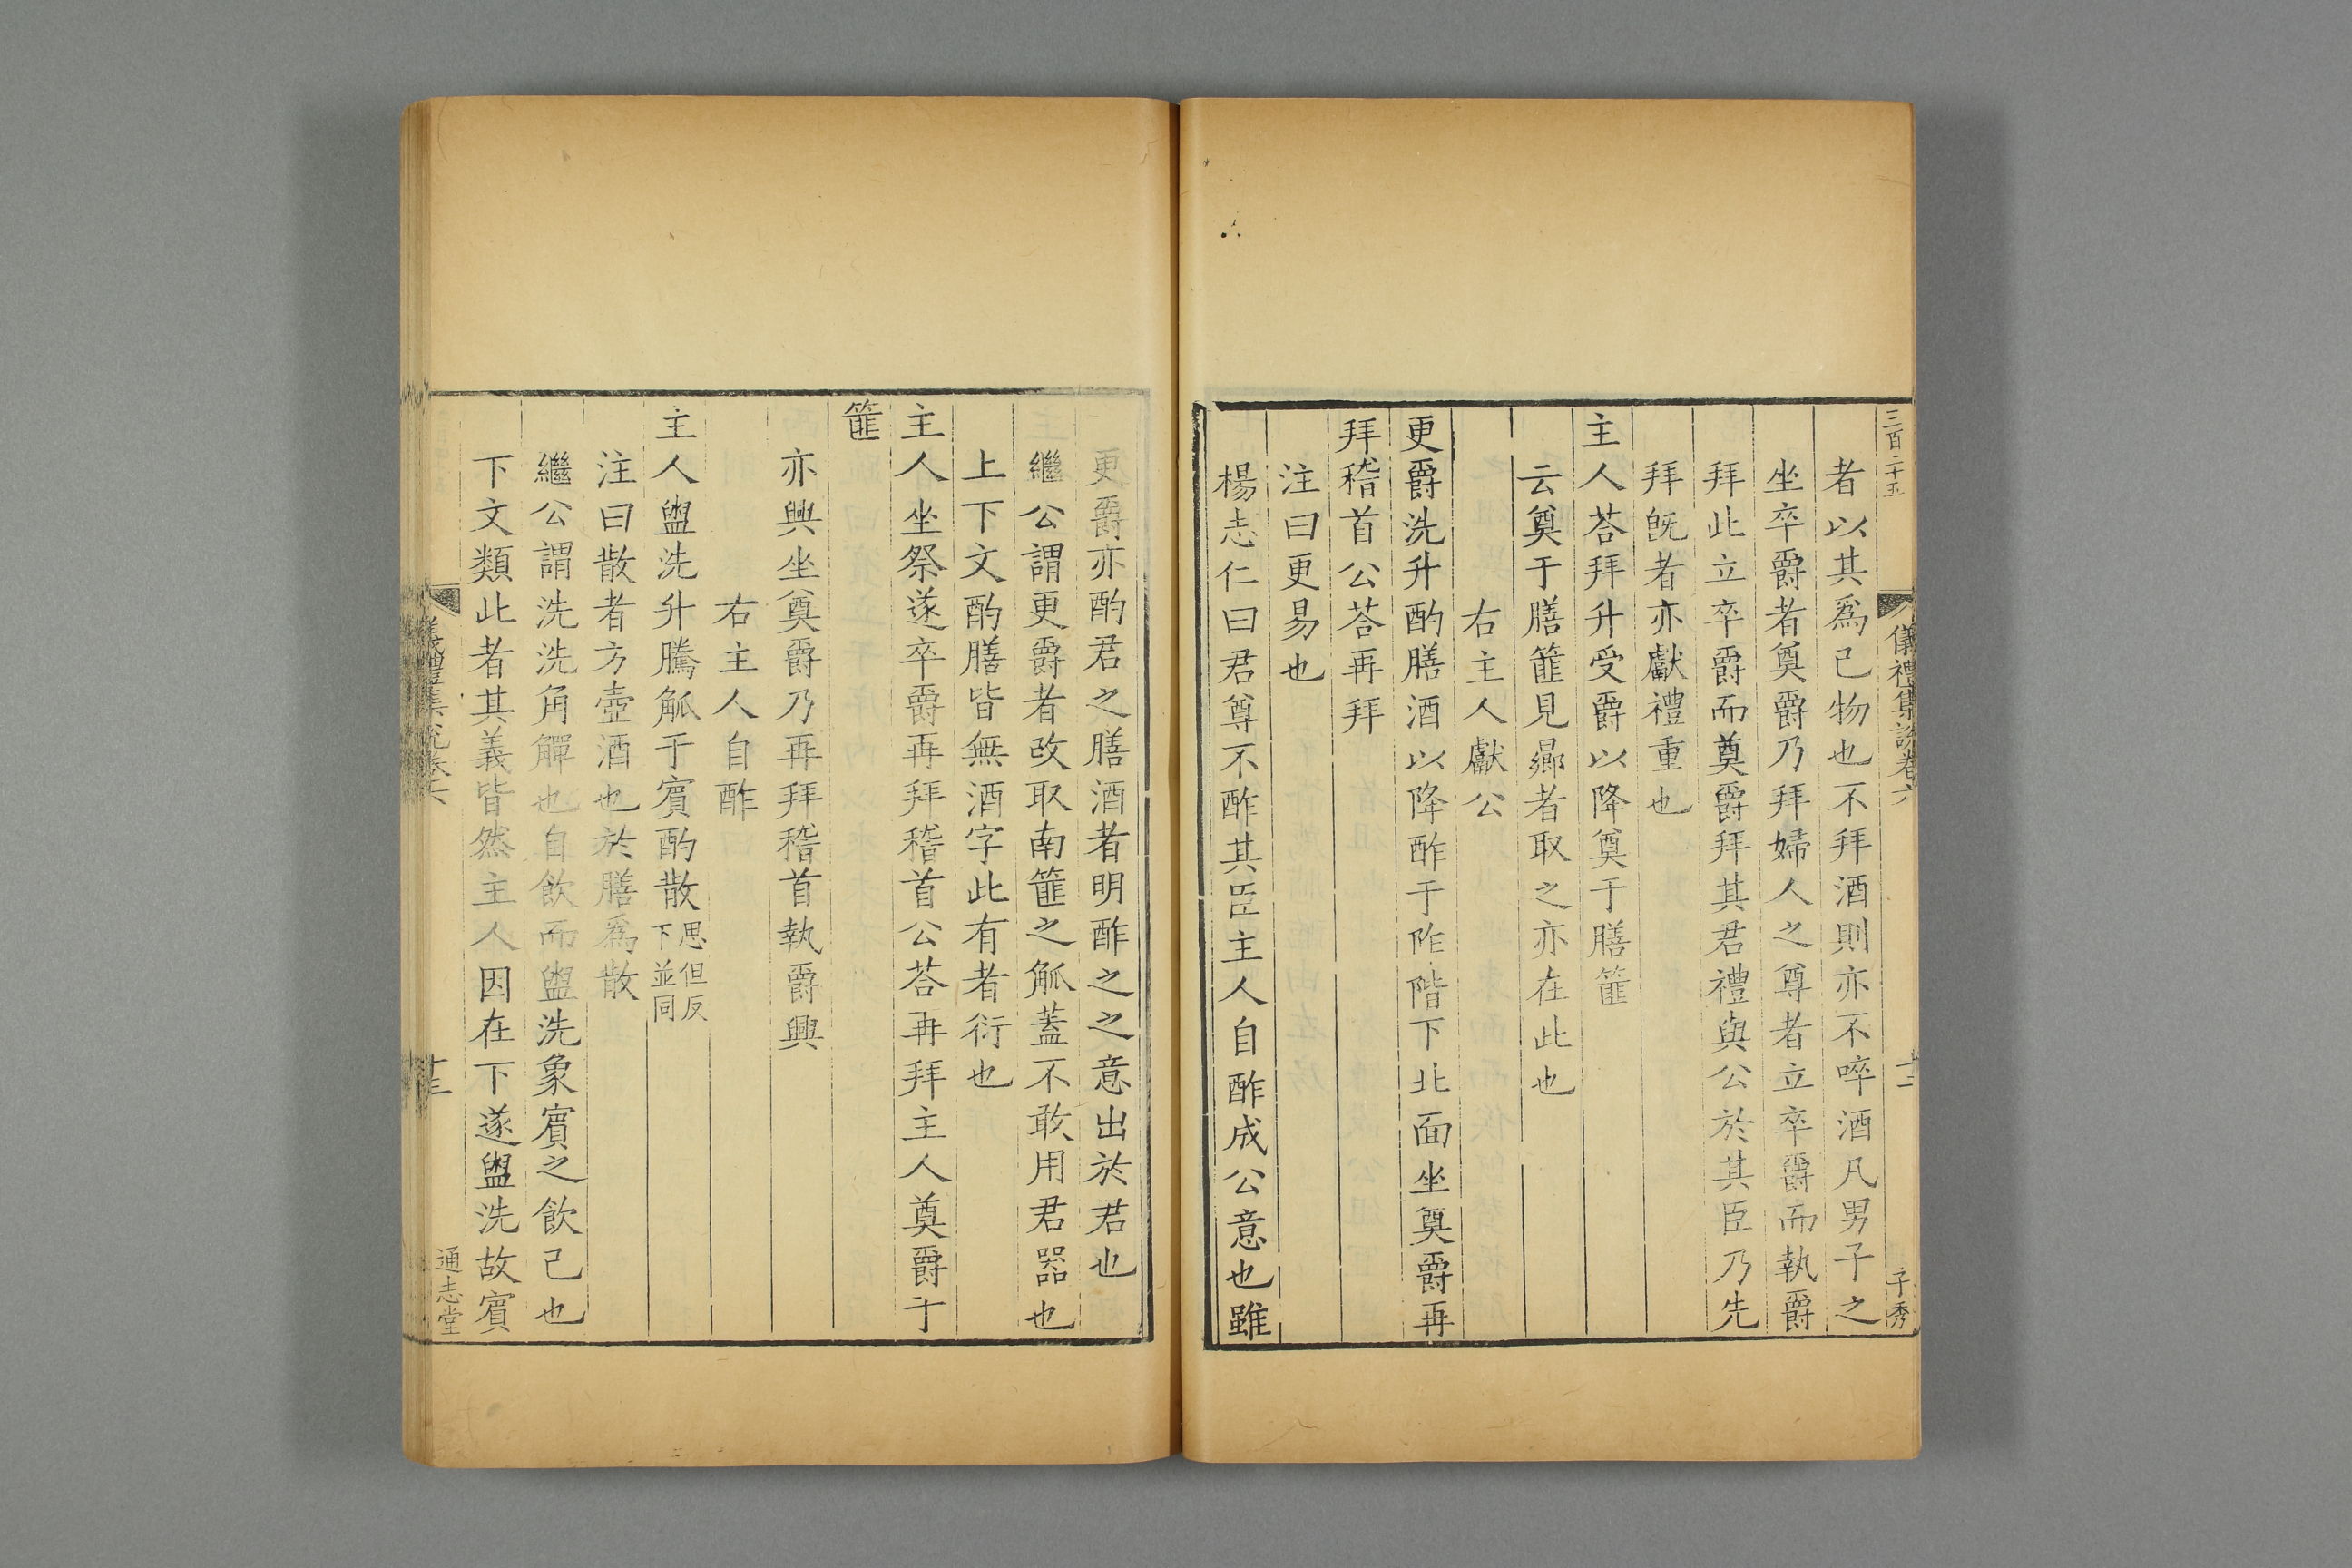 三百二十五
儀禮集說卷六
十二
子秀
者以其爲己物也不拜酒則亦不啐酒凡男子之
坐卒爵者奠爵乃拜婦人之尊者立卒爵而執爵
拜此立卒爵而奠爵拜其君禮與公於其臣乃先
拜旣者亦獻禮重也
主人荅拜升受爵以降奠于膳篚
云奠于膳篚見曏者取之亦在此也
右主人獻公
更爵洗升酌膳酒以降酢于阼階下北面坐奠爵再
拜稽首公荅再拜
注曰更易也
楊志仁曰君尊不酢其臣主人自酢成公意也雖
更爵亦酌君之膳酒者明酢之之意出於君也
繼公謂更爵者改取南篚之觚蓋不敢用君器也
上下文酌膳皆無酒字此有者衍也
主人坐祭遂卒爵再拜稽首公荅再拜主人奠爵于
篚
亦興坐奠爵乃再拜稽首執爵興
右主人自酢
主人盥洗升騰觚于賓酌散思但反下並同
注曰散者方壺酒也於膳爲散
繼公謂洗洗角觶也自飲而盥洗象賓之飲己也
下文類此者其義皆然主人因在下遂盥洗故賓
儀禮集說卷六
十三
通志堂